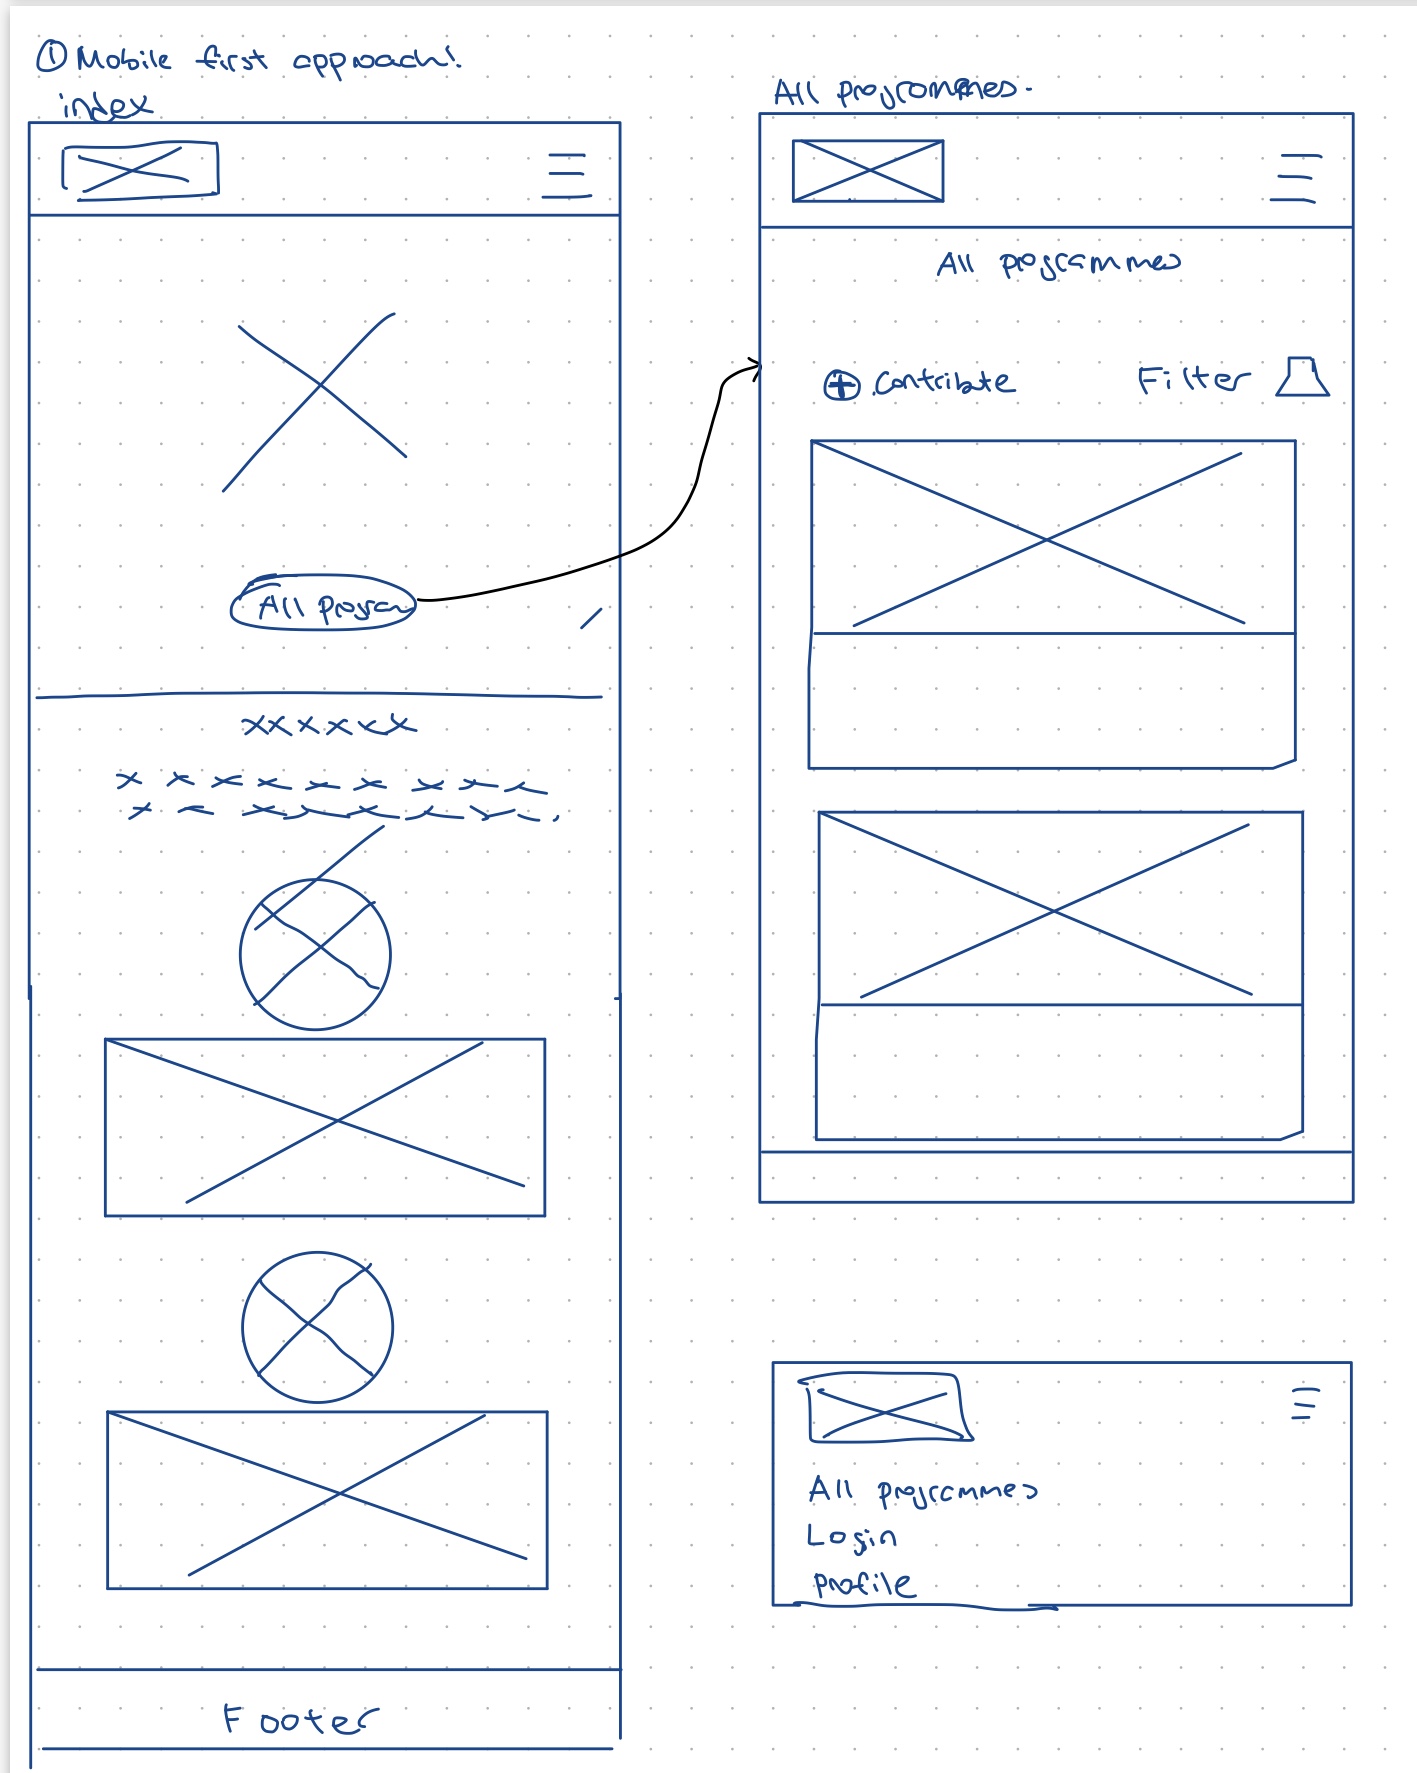 ① Mobile first approach!
index
All program
xxxxxx
x x x x x x x x x
Footer
All programmes.
All programmes
+ Contribute
Filter
All programmes
Login
Profile